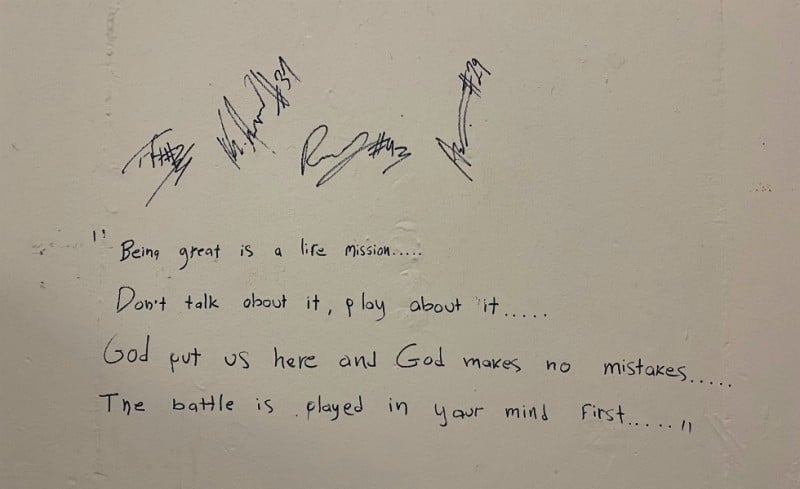 #37
#43
#29
"Being great is a life mission.....
Don't talk about it, play about it.....
God put us here and God makes no mistakes.....
The battle is played in your mind first....."